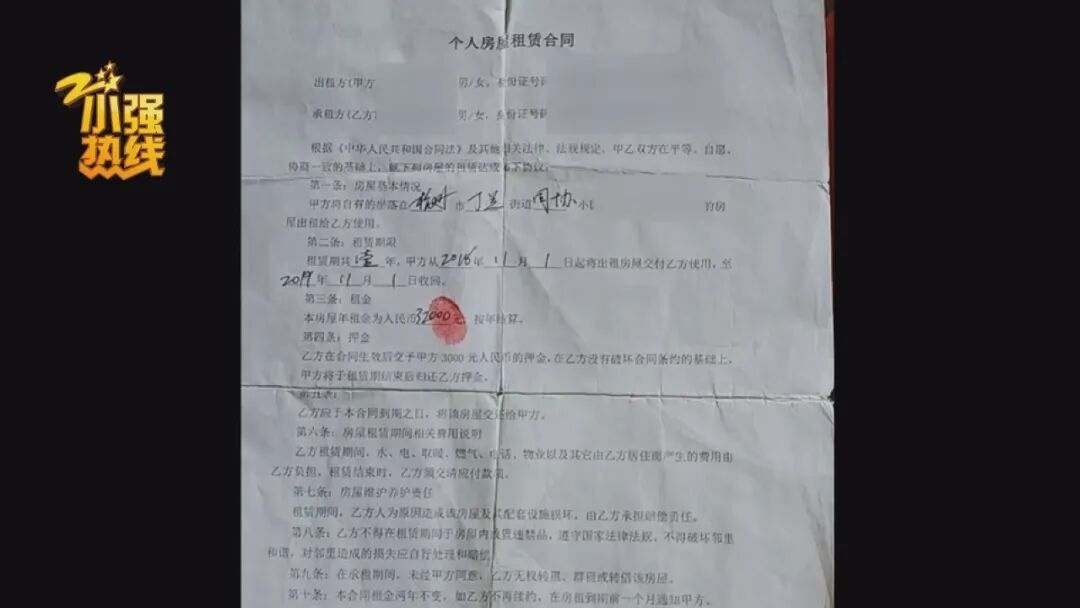 小强
热线
个人房屋租赁合同
出租方(甲方 男/女，身份证号码
承租方(乙方) 男/女，身份证号码
根据《中华人民共和国合同法》及其他相关法律、法规规定，甲乙双方在平等、自愿、
协商一致的基础上，就下列房屋的租赁达成如下协议：
第一条：房屋基本情况
甲方将自有的坐落在 市 丁兰 街道 同协 小 的房
屋出租给乙方使用。
第二条：租赁期限
租赁期共 壹 年，甲方从 2018 年 11 月 1 日起将出租房屋交付乙方使用，至
2019 年 11 月 1 日收回。
第三条：租金
本房屋年租金为人民币32000元，按年结算。
第四条：押金
乙方在合同生效后交予甲方3000元人民币的押金，在乙方没有破坏合同条约的基础上，
甲方将于租赁期结束后归还乙方押金。
第五条：
乙方应于本合同到期之日，将该房屋交还给甲方。
第六条：房屋租赁期间相关费用说明
乙方租赁期间，水、电、取暖、燃气、电话、物业以及其它由乙方居住而产生的费用由
乙方负担。租赁结束时，乙方须交清应付款项。
第七条：房屋维护养护责任
租赁期间，乙方人为原因造成该房屋及其配套设施损坏，由乙方承担赔偿责任。
第八条：乙方不得在租赁期间于房屋内放置违禁品，遵守国家法律法规，不得破坏邻里
和谐，对邻里造成的损失应自行处理和赔偿。
第九条：在承租期间，未经甲方同意，乙方无权转租、群租或转借该房屋。
第十条：本合同租金两年不变，如乙方不再续约，在房租到期前一个月通知甲方。